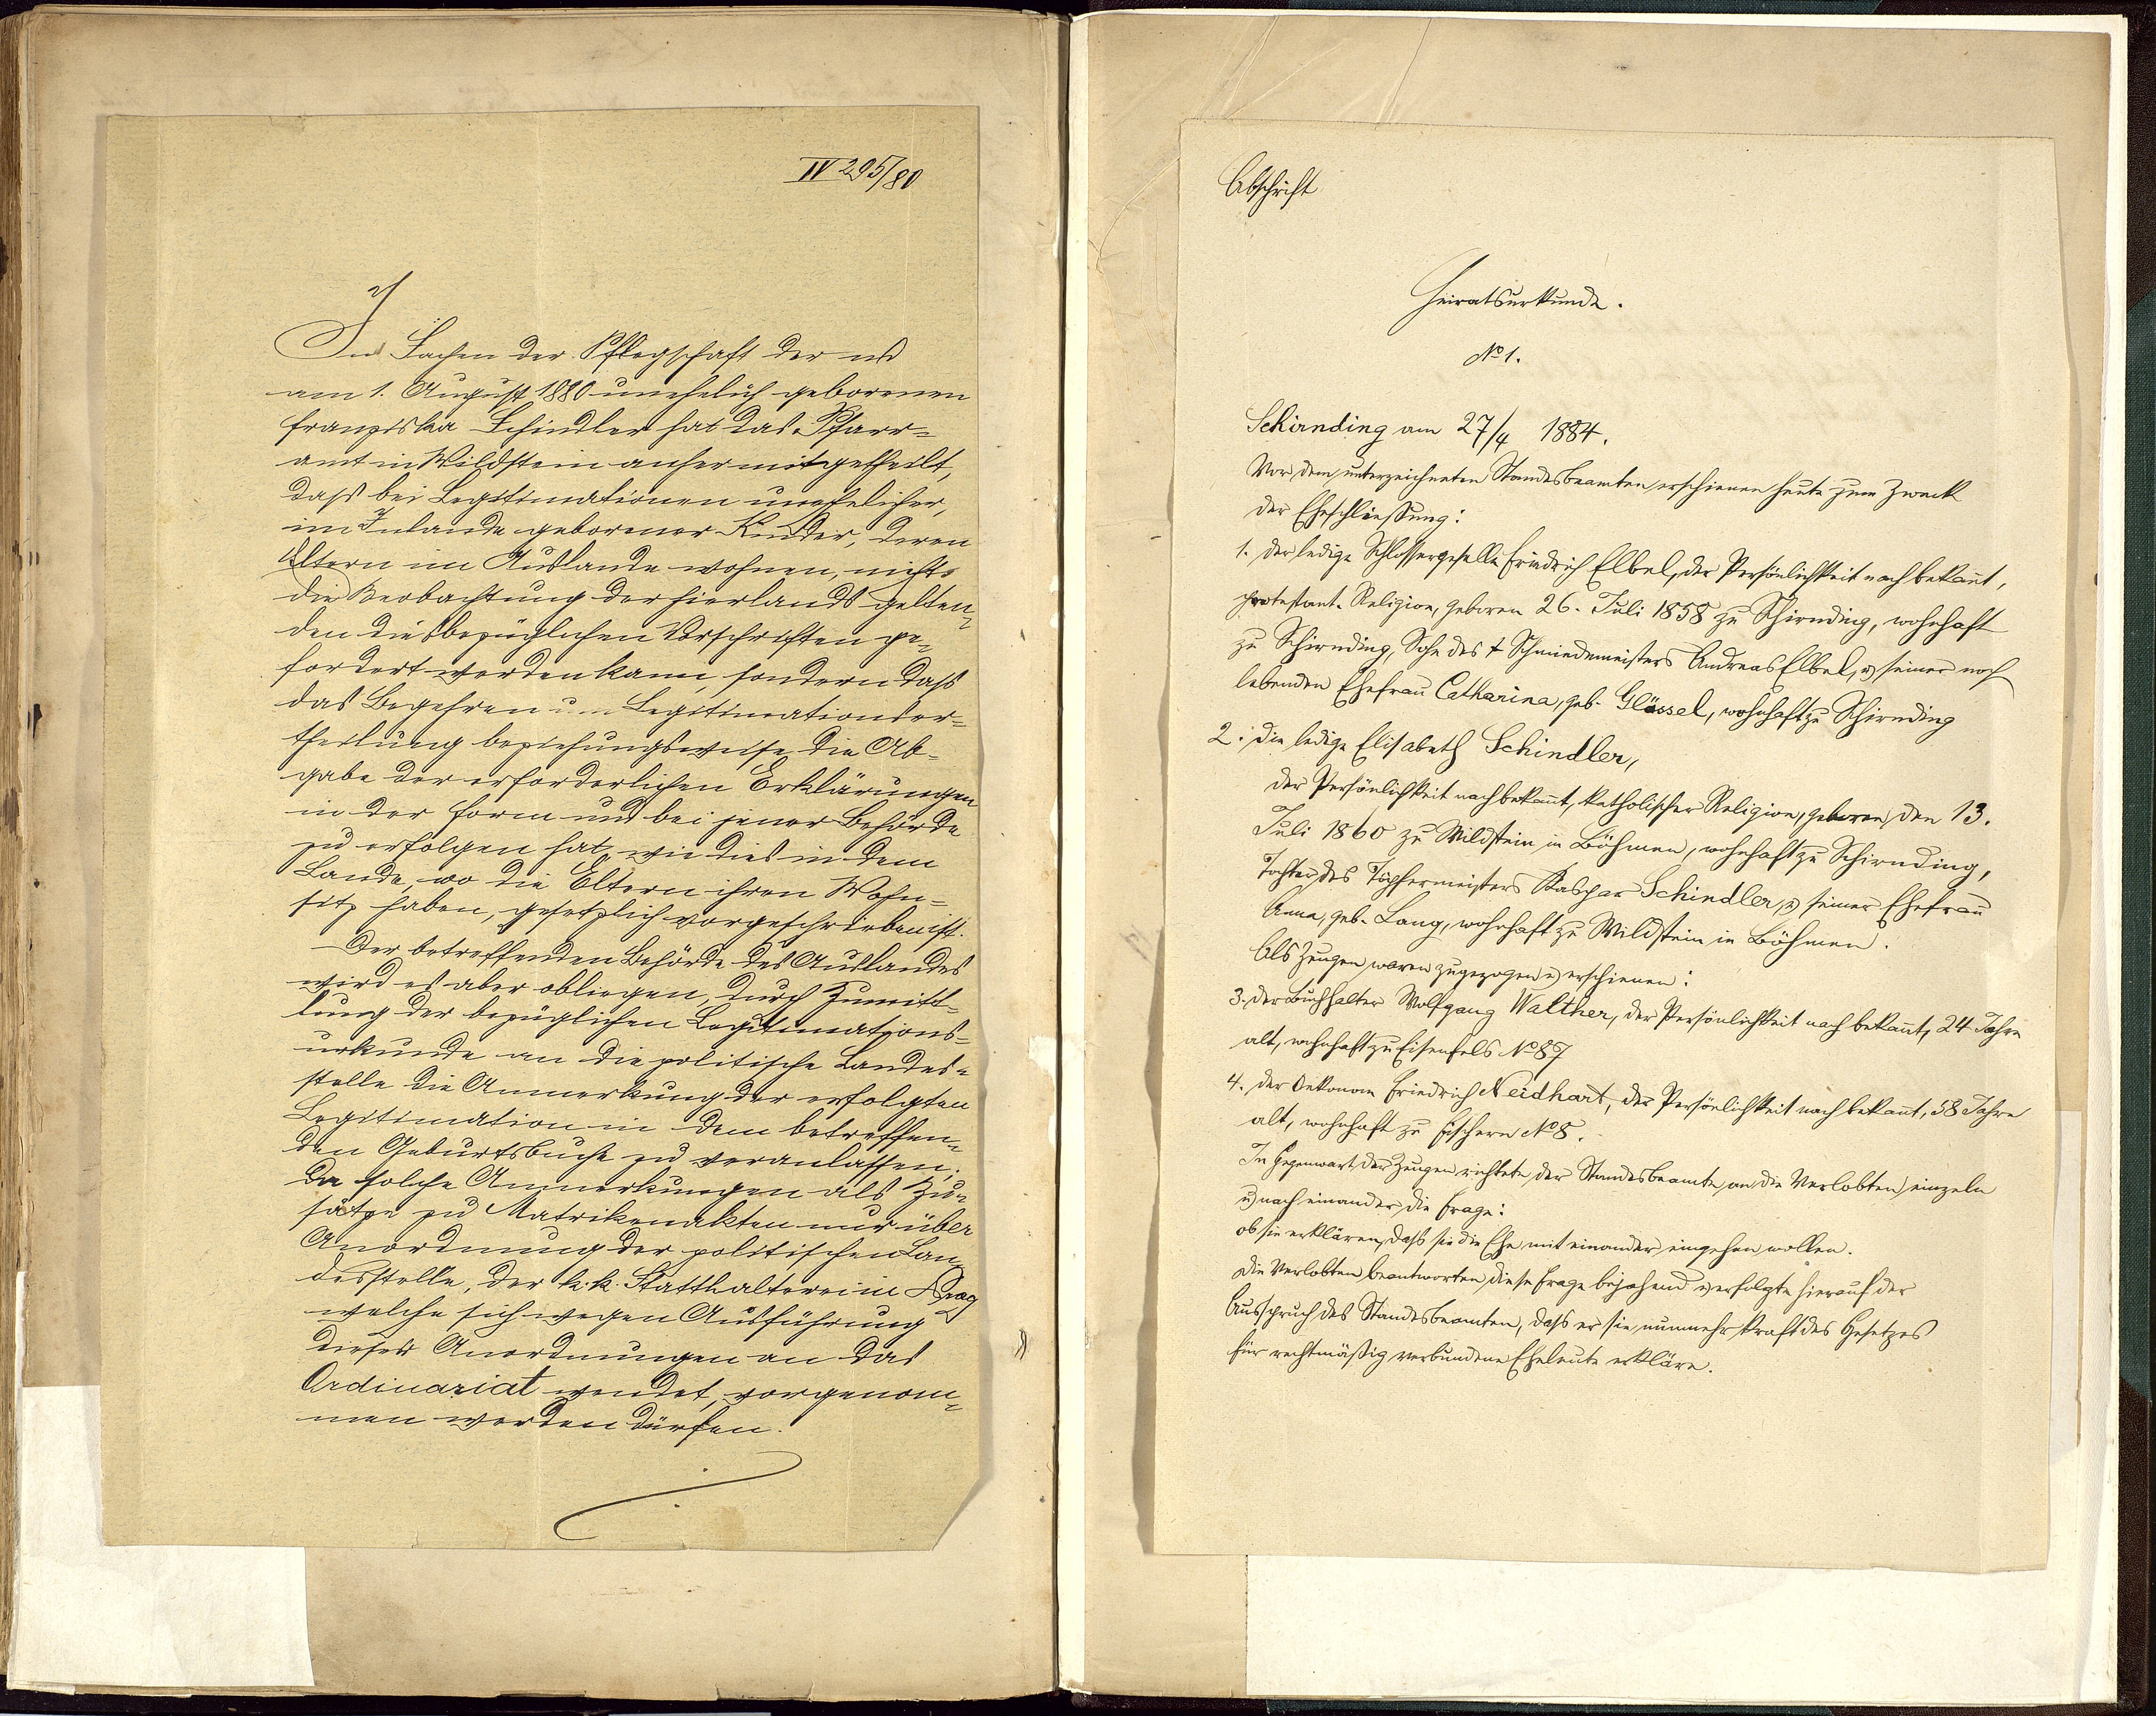 IV 295/80
In Sachen der Pflegschaft der
am 1. August 1880 unehelich geborenen
Franziska Schindler hat das Pfarr-
amt in Wildstein anher mitgetheilt,
daß bei Legitimationen unehelicher,
im Inlande geborener Kinder, deren
Eltern im Auslande wohnen, nicht
die Beobachtung der hierlands gelten-
den diesbezüglichen Vorschriften ge-
fordert werden kann, sondern daß
das Begehren um Legitimationser-
theilung beziehungsweise die Ab-
gabe der erforderlichen Erklärungen
in der Form und bei jener Behörde
zu erfolgen hat, wie dies in dem
Lande, wo die Eltern ihren Wohn-
sitz haben, gesetzlich vorgeschrieben ist.
Der betreffenden Behörde des Auslandes
wird es aber obliegen, durch Zumitt-
lung der bezüglichen Legitimations-
urkunde an die politische Landes-
stelle die Anmerkung der erfolgten
Legitimation in dem betreffen-
den Geburtsbuche zu veranlassen,
da solche Anmerkungen als Zu-
sätze zu Matrikenakten nur über
Anordnung der politischen Lan-
desstelle, der k. k. Statthalterei in Prag
welche sich wegen Ausführung
dieser Anordnungen an das
Ordinariat wendet, vorgenom-
men werden dürfen.
Abschrift
Heiratsurkunde.
No 1.
Schirnding am 27/4 1884.
Vor dem unterzeichneten Standesbeamten erschienen heute zum Zweck
der Eheschließung:
1. der ledige Schlossergeselle Friedrich Elbel, der Persönlichkeit nach bekannt,
protestant. Religion, geboren 26. Juli 1858 zu Schirnding, wohnhaft
zu Schirnding, Sohn des + Schmiedemeisters Andreas Elbel, u. seiner noch
lebenden Ehefrau Catharina, geb. Glässel, wohnhaft zu Schirnding
2. die ledige Elisabeth Schindler,
der Persönlichkeit nach bekannt, katholischer Religion, geboren den 13.
Juli 1860 zu Wildstein in Böhmen, wohnhaft zu Schirnding,
Tochter des Töpfermeisters Kaspar Schindler, u. seiner Ehefrau
Anna, geb. Lang, wohnhaft zu Wildstein in Böhmen.
Als Zeugen waren zugezogen u. erschienen:
3. der Buchhalter Wolfgang Walther, der Persönlichkeit nach bekannt, 24 Jahre
alt, wohnhaft zu Eisenfels No 87
4. der Oekonom Friedrich Neidhart, der Persönlichkeit nach bekannt, 58 Jahre
alt, wohnhaft zu Fischern No 8.
In Gegenwart der Zeugen richtete der Standesbeamte an die Verlobten einzeln
u. nach einander die Frage:
ob sie erklären, daß sie die Ehe mit einander eingehen wollen.
Die Verlobten beantworten diese Frage bejahend u. erfolgte hierauf der
Ausspruch des Standesbeamten, daß er sie nunmehr kraft des Gesetzes
für rechtmäßig verbundene Eheleute erkläre.